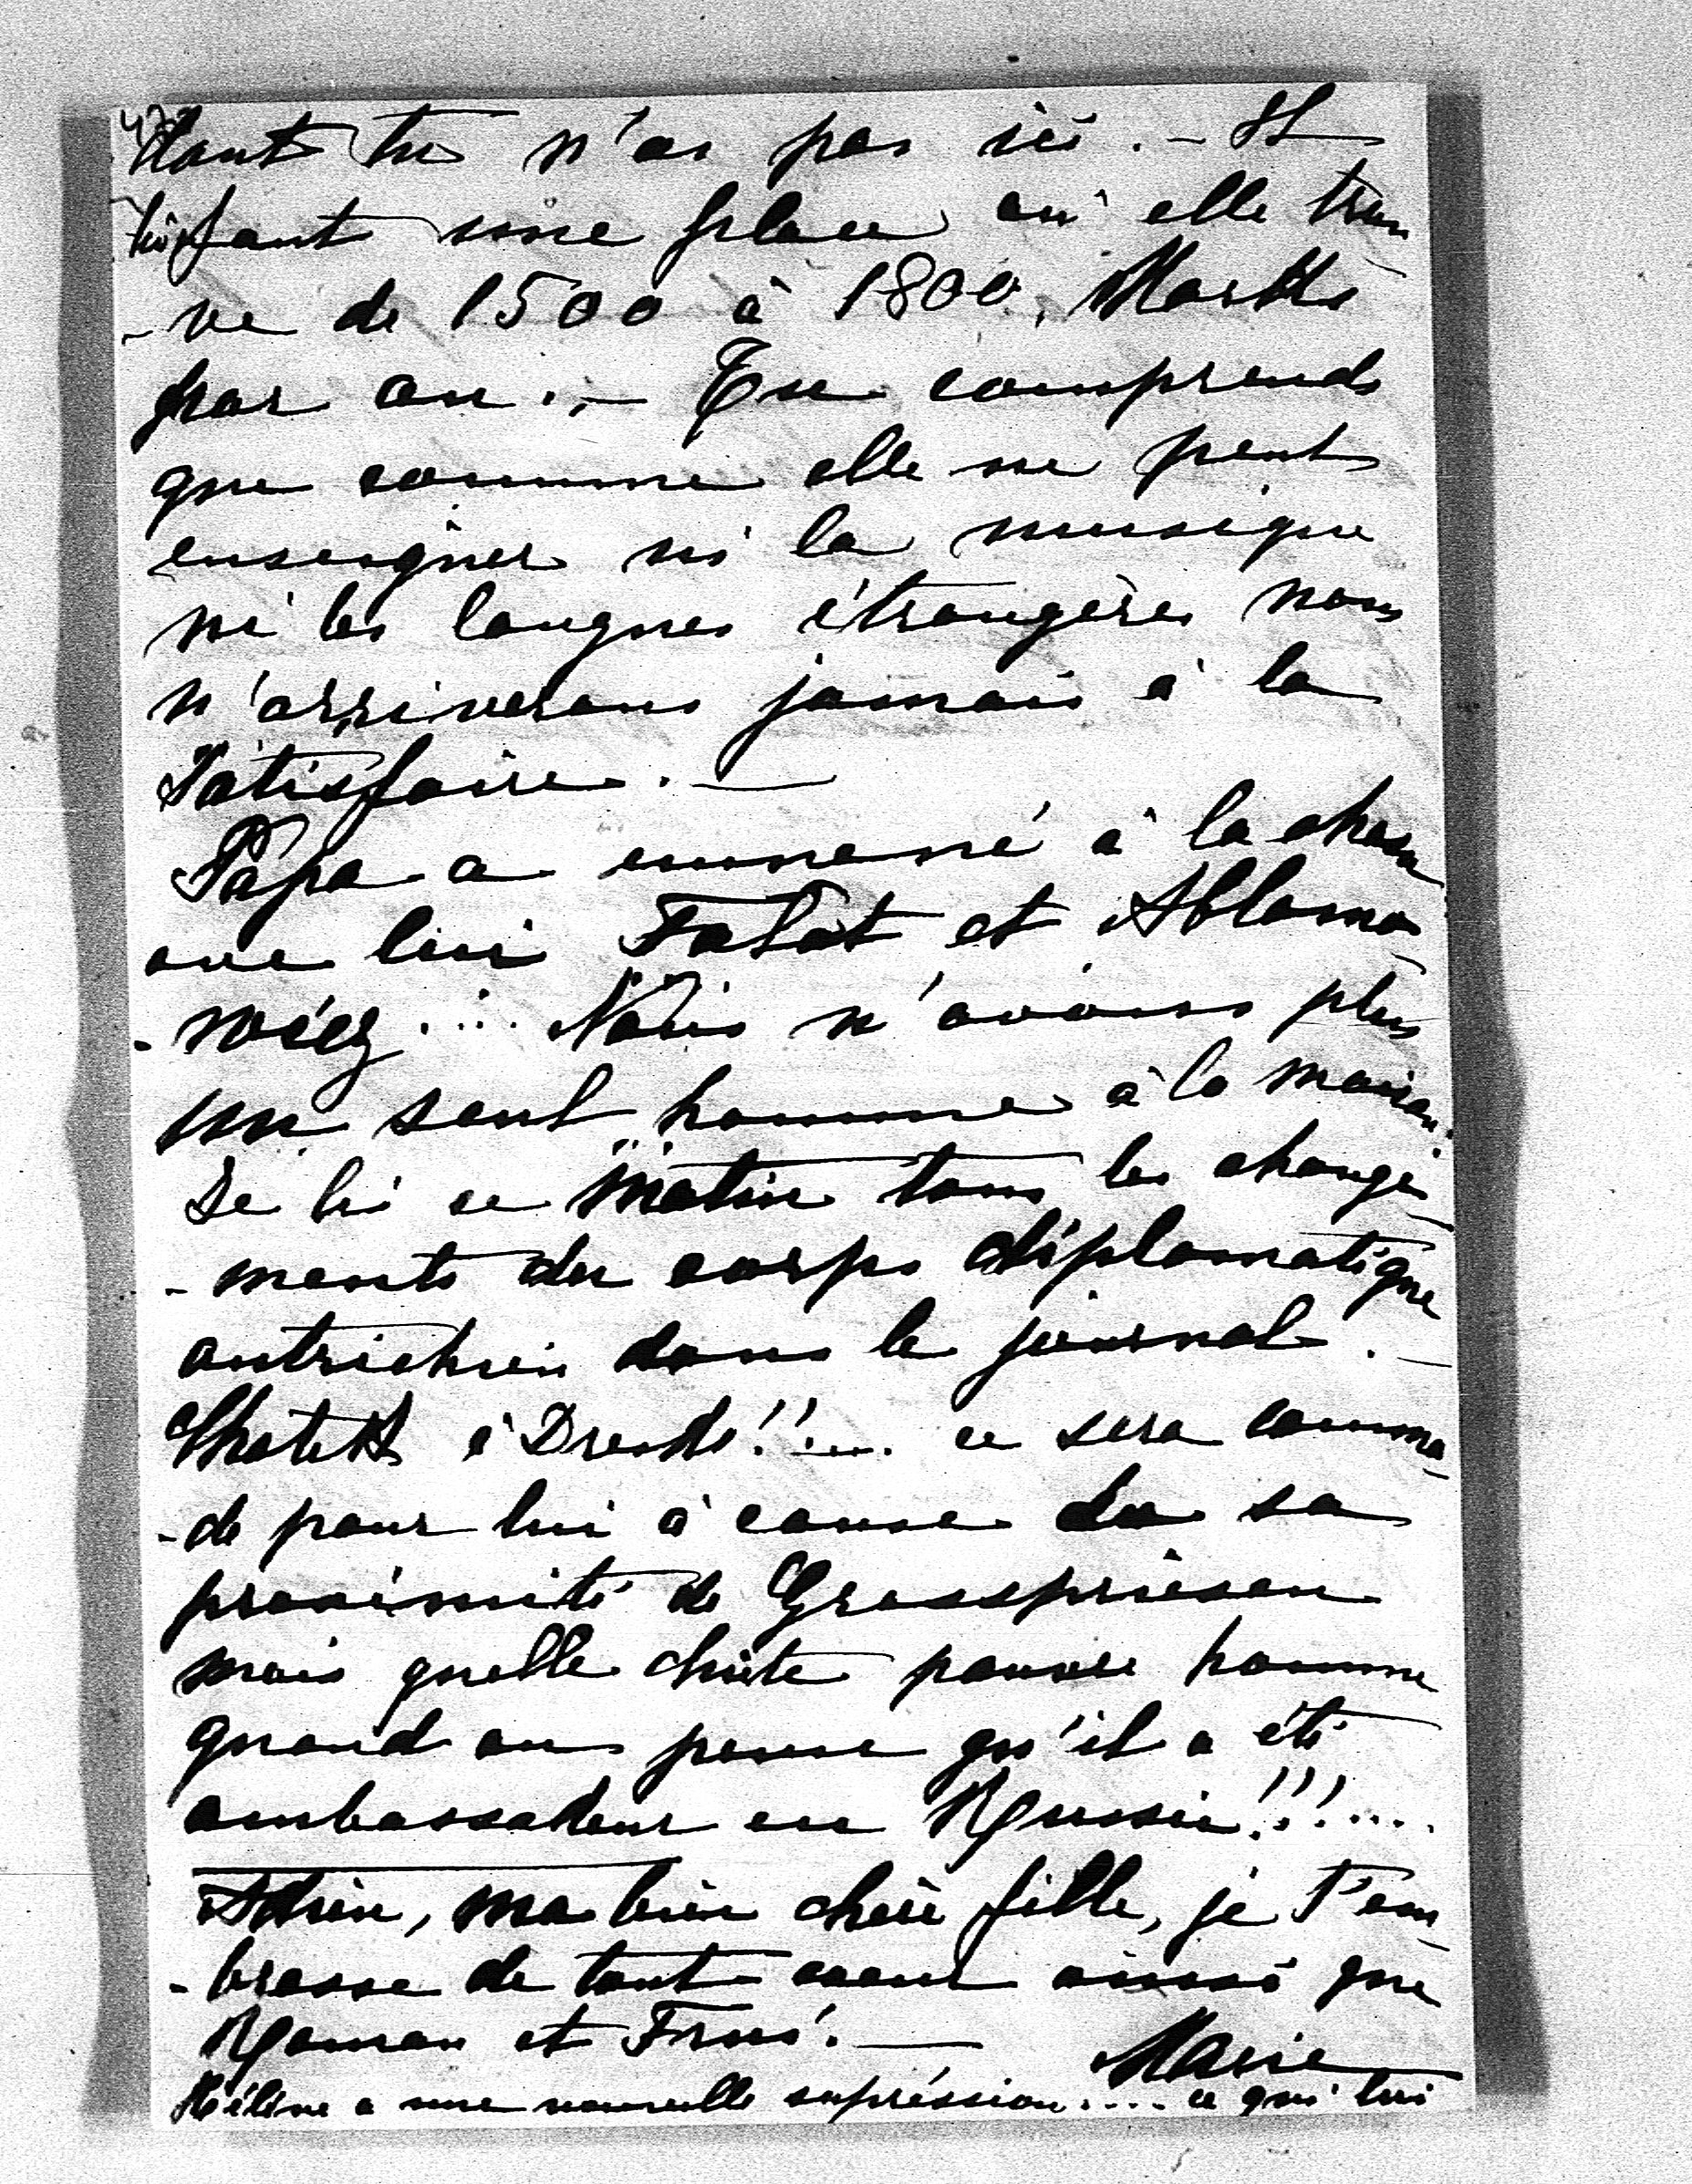 dont tu n'as pas ici. - Il
lui faut une place où elle trou
-ve de 1500 à 1800, Markks
par an. - Tu comprends
que comme elle ne peut
enseigner ni la musique
ni les langues étrangères nous
n'arriverons jamais à la
satisfaire. -
Papa a emmené à la chasse
avec lui Falat et Ablamo
-wicz.... Nous n'avons plus
un seul homme à la maison.
Je lis ce matin tous les change
-ments du corps diplomatique
autrichien dans le journal. -
Chotek à Dresde!!... ce sera commo
-de pour lui à cause de sa
proximité de Grosspriesen
mais quelle chute pauvre homme
quand on pense qu'il a été
ambassadeur en Russie!!!....
Adieu, ma bien chère fille, je t'em
-brasse de tout coeur ainsi que
Roman et
Marie
Hélène a une nouvelle supréssion.... ce qui lui